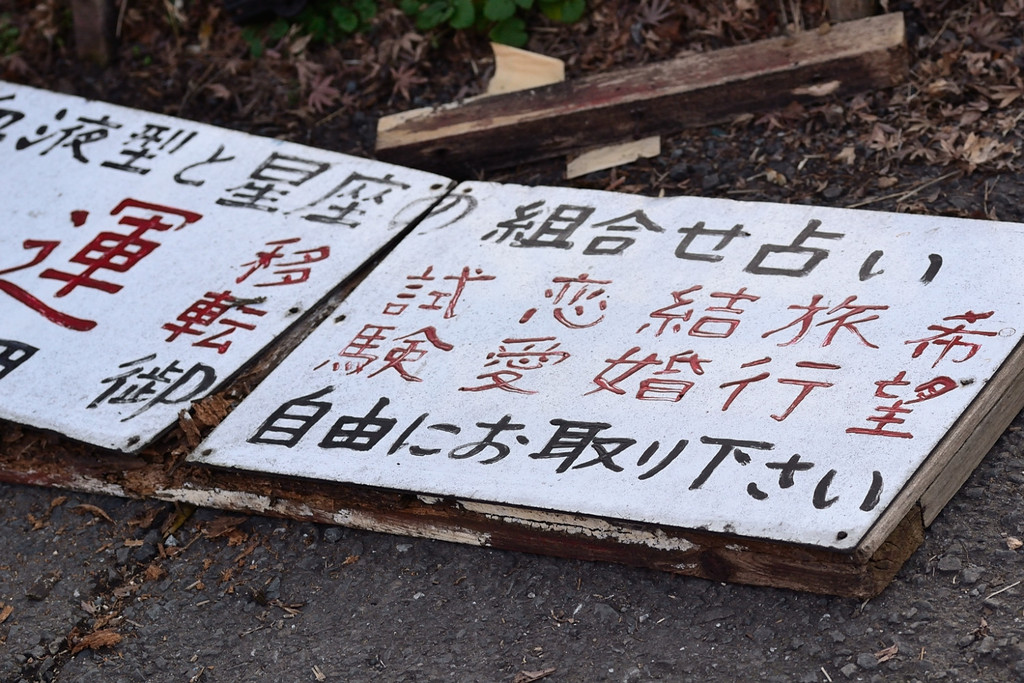 血液型と星座の組合せ占い
運 移転 試験 恋愛 結婚 旅行 希望
御 自由にお取り下さい